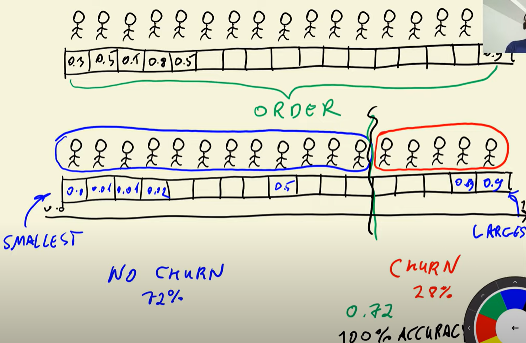 0.3 0.5 0.1 0.8 0.5
ORDER
0.0 0.01 0.01 0.02 0.5 0.9
SMALLEST
NO CHURN
72%
CHURN
28%
0.72
100% ACCURAC